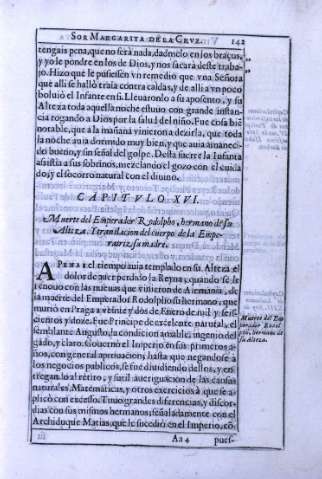 SOR MARGARITA DE LA CRVZ. 142
tengais pena, que no será nada, dadmelo en los braços,
y yo le pondre en los de Dios, y nos sacará deste traba-
jo. Hizo que le pusiessen vn remedio que vna Señora
que alli se halló traía contra caidas, y de alli a vn poco
boluió el Infante en si. Lleuaronlo a su aposento, y su
Alteza toda aquella noche estuuo con grande instan-
cia rogando a Dios por la salud del niño. Fue cosa bié
notable, que a la mañana vinieron a dezirla, que toda
la noche auia dormido muy bien, y que auia amaneci-
do bueno, y sin señal del golpe. Desta suerte la Infanta
assistia a sus sobrinos, mezclando el gozo con el cuida
do, y el socorro natural con el diuino.
CAPITVLO XVI.
Muerte del Emperador Rodolpho, hermano de su
Alteza. Y translacion del cuerpo de la Empe-
ratriz su madre.
APENAS el tiempo auia templado en su Alteza el
dolor de auer perdido la Reyna, quando se le
renouò con las nueuas que vinieron de Alemania, de
la muerte del Emperador Rodolpho su hermano, que
murió en Praga a veinte y dos de Enero de mil y seis-
cientos y doze. Fue Principe de excelente natural, el
semblante Augusto, la condicion amable, ingenio del-
gado, y claro. Gouernó el Imperio en sus primeros a-
ños, con general aprouacion; hasta que negandose a
los negocios publicos, se fue diuidiendo dellos, y en-
tregando al retiro, y sutil aueriguacion de las causas
naturales, Matematicas, y otros exercicios à que se a-
plicó con excesso. Tuuo grandes diferencias, y discor-
dias con sus mismos hermanos; señaladamente con el
Archiduque Matias, que le sucedió en el Imperio, có-
Muerte del Em
perador Rodol
pho, hermano de
su Alteza.
Aa 4 pues-